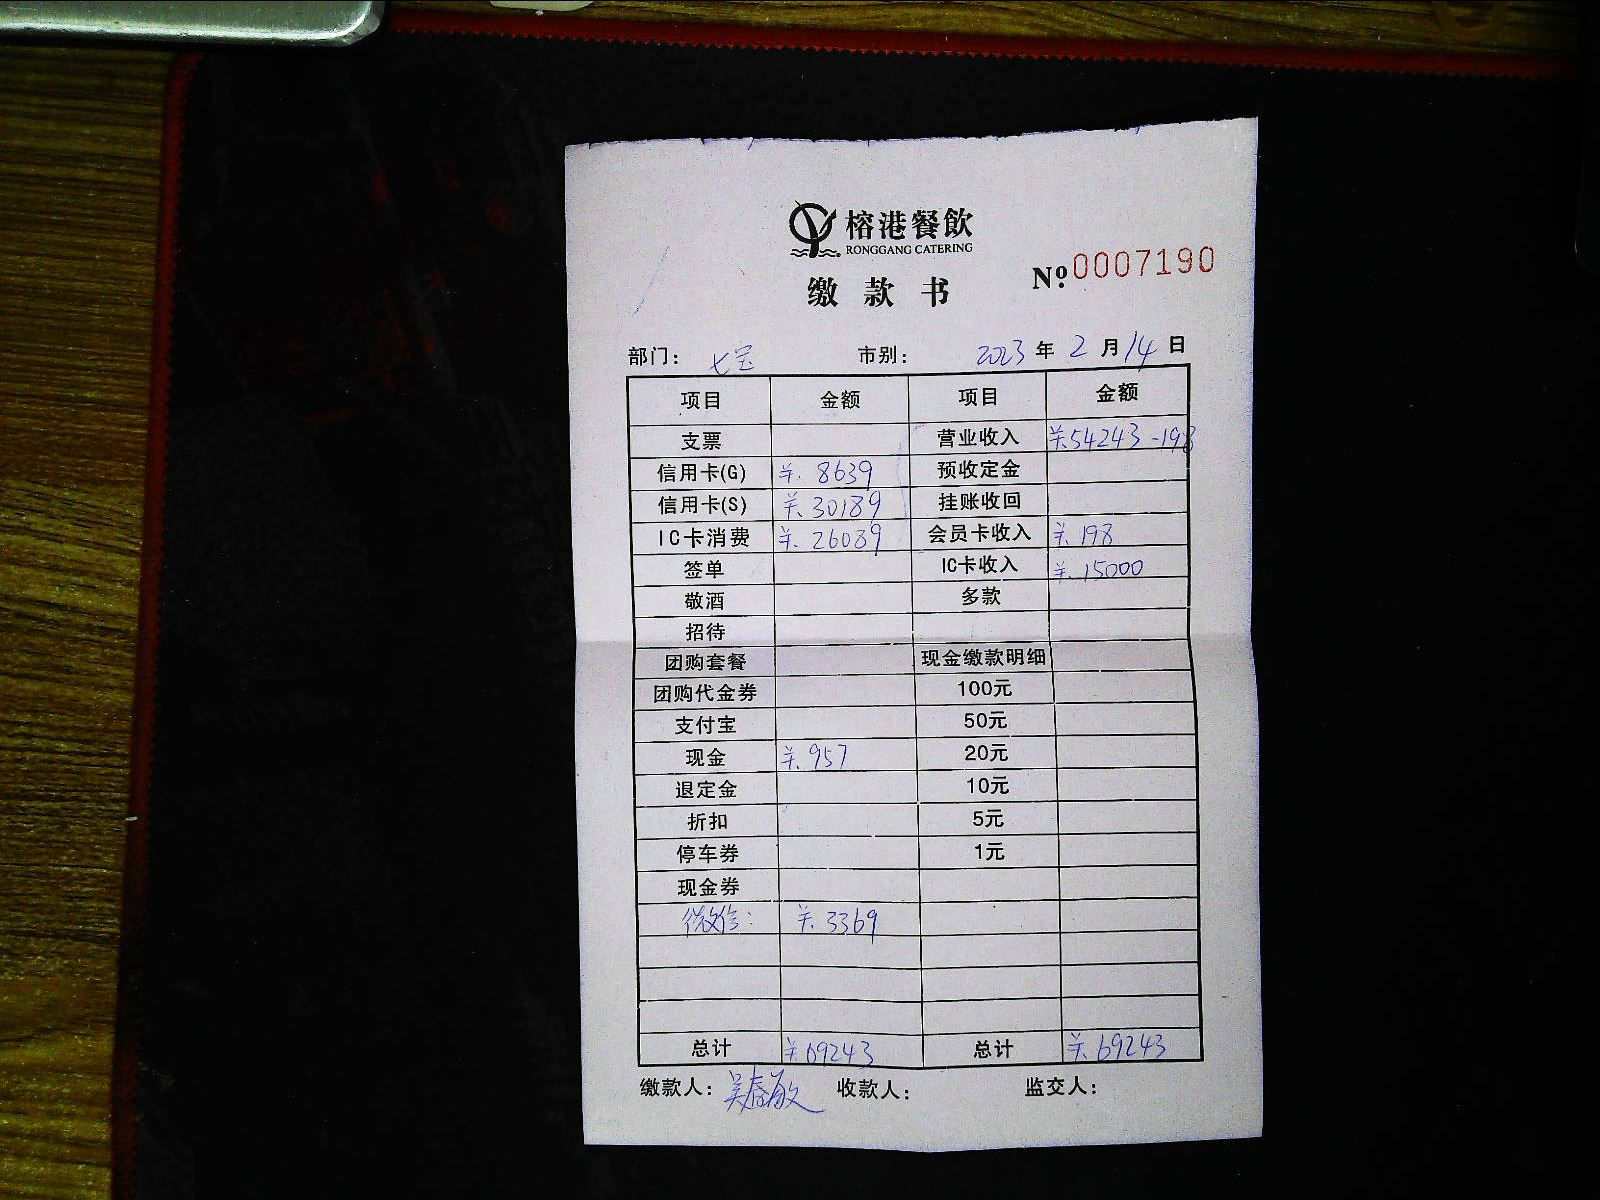 榕港餐飲
RONGGANG CATERING
缴款书 Nº 0007190
部门： 七宝 市别： 2023 年 2 月 14 日
项目 金额 项目 金额
支票 营业收入 ¥.54243 -198
信用卡(G) ¥. 8639 预收定金
信用卡(S) ¥. 30189 挂账收回
IC卡消费 ¥. 26089 会员卡收入 ¥. 198
签单 IC卡收入 ¥. 15000
敬酒 多款
招待
团购套餐 现金缴款明细
团购代金券 100元
支付宝 50元
现金 ¥. 957 20元
退定金 10元
折扣 5元
停车券 1元
现金券
微信： ¥. 3369
总计 ¥.69243 总计 ¥. 69243
缴款人： 吴春敏 收款人： 监交人：